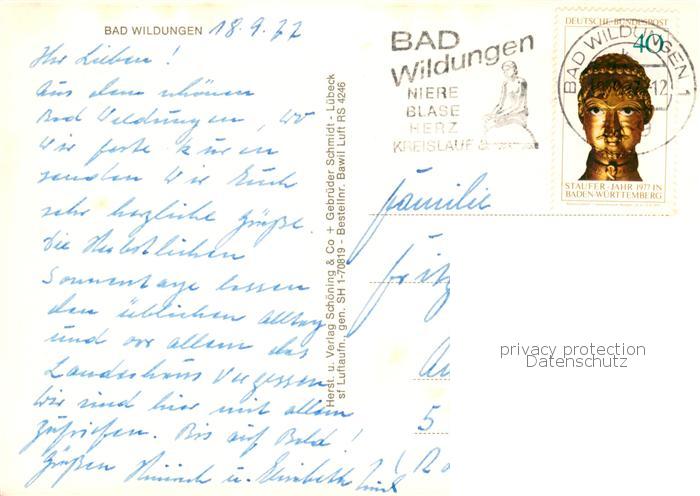 BAD WILDUNGEN 18.9.77
Ihr Lieben!
Aus dem schönen
Bad Wildungen, wo
wir feste kuren
senden wir Euch
sehr herzliche Grüße.
Die Herbstlichen
Sonnentage lassen
den üblichen Alltag
und vor allem das
Landeshaus vergessen
Wir sind hier mit allem
zufrieden. Bis auf Bald!
Grüßen Heinrich u. Elisabeth
Herst. u. Verlag Schöning & Co + Gebrüder Schmidt - Lübeck
sf Luftaufn., gen. SH 1-70819 - Bestellnr. Bawil Luft RS 4246
BAD
Wildungen
NIERE
BLASE
HERZ
KREISLAUF
BAD WILDUNGEN 1
DEUTSCHE BUNDESPOST
40
STAUFER-JAHR 1977 IN
BADEN-WÜRTTEMBERG
Familie
Fritz
5
privacy protection
Datenschutz